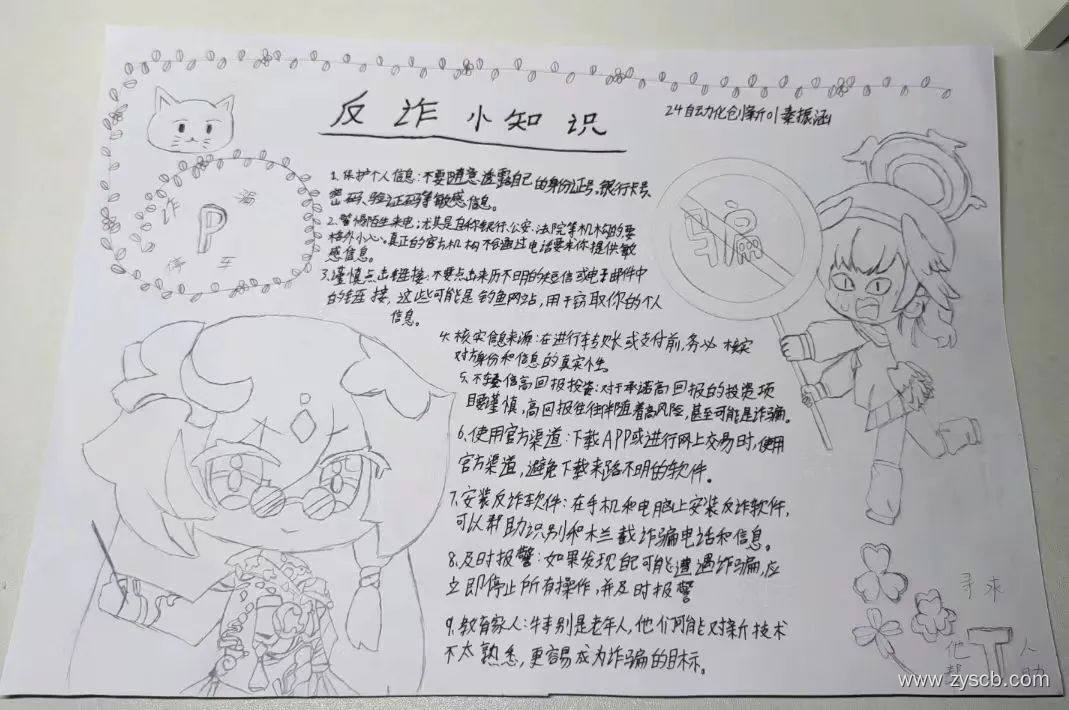 反诈小知识
24自动化创新1 秦振涵
诈 P 漏
停车
骗
1. 保护个人信息:不要随意透露自己的身份证号、银行卡号、
密码、验证码等敏感信息。
2. 警惕陌生来电:尤其是自称银行、公安、法院等机构的要
格外小心。真正的官方机构不会通过电话要求你提供敏
感信息。
3. 谨慎点击链接:不要点击来历不明的短信或电子邮件中
的链接,这些可能是钓鱼网站,用于窃取你的个人
信息。
4. 核实信息来源:在进行转账或支付前,务必核实
对方身份和信息的真实性。
5. 不轻信高回报投资:对于承诺高回报的投资项
目要谨慎,高回报往往伴随着高风险,甚至可能是诈骗。
6. 使用官方渠道:下载APP或进行网上交易时,使用
官方渠道,避免下载来路不明的软件。
7. 安装反诈软件:在手机和电脑上安装反诈软件,
可以帮助识别和拦截诈骗电话和信息。
8. 及时报警:如果发现自己可能遭遇诈骗,应
立即停止所有操作,并及时报警
9. 教育家人:特别是老年人,他们可能对新技术
不太熟悉,更容易成为诈骗的目标。
寻求
他人
帮助
www.zyscb.com